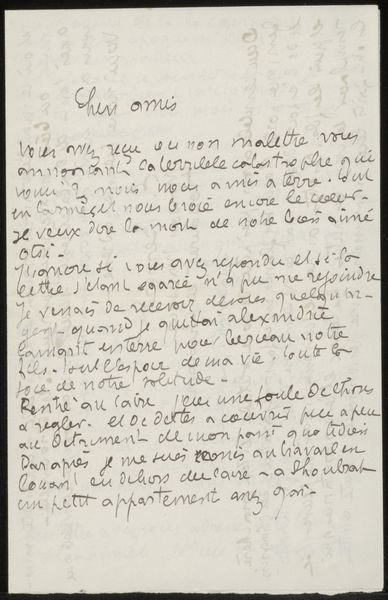 Chers amis
Vous avez reçu ou non ma lettre vous
annonçant la terrible catastrophe qui
nous a mis a terre.
en la nous broie encore le coeur.
Je veux dire la mort de notre bien aimé
J'ignore si vous avez repondu et si la
lettre s'étant egarée n'a pu me rejoindre
Je venais de recevoir de vous quelque
quand je quittai alexandrie
laissant enterré pour notre
fils. Tout l'espoir de ma vie. Toute la
joie de notre solitude.
Rentré au Caire j'eus une foule de choses
a regler. et de dettes a couvrir peu a peu
au detriment de mon pain quotidien
Puis après je me suis remis au travail en
louant en dehors du Caire - a Shoubrah
un petit appartement assez gai.